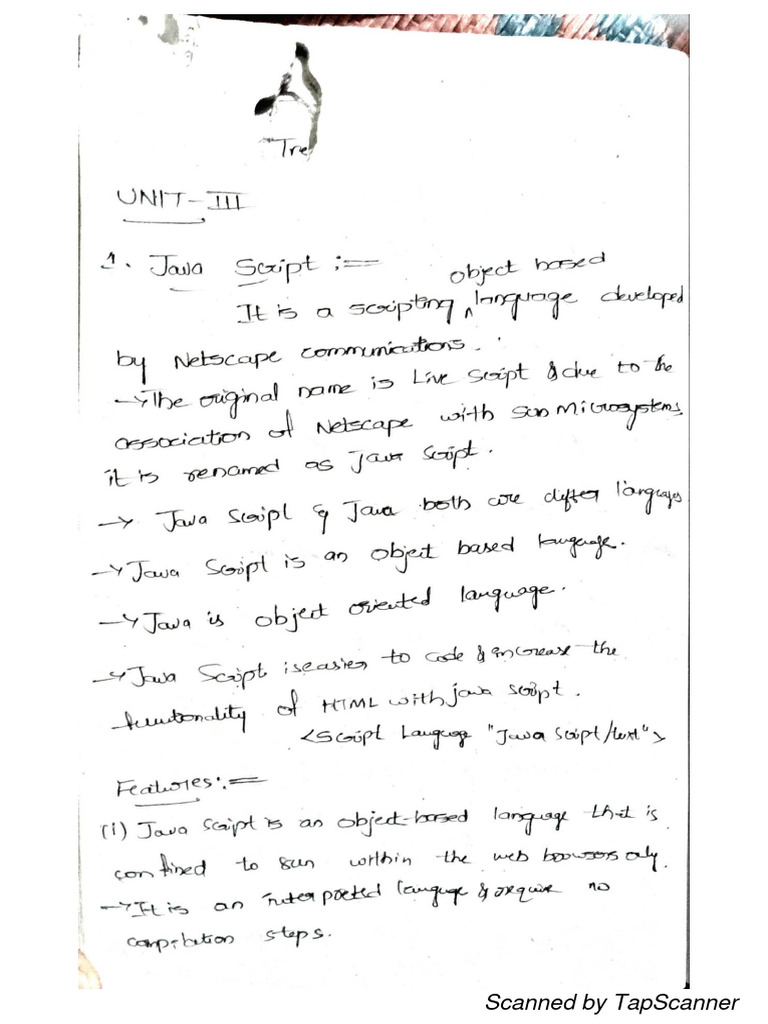 Tre
UNIT-III
1. Java Script :==
object based
It is a scripting ^ language developed
by Netscape communications.
→The original name is Live Script & due to the
association of Netscape with Sun Microsystems,
it is renamed as Java Script.
→ Java Script & Java both are differ languages
→Java Script is an object based language.
→Java is object oriented language.
→Java Script is easier to code & increase the
functionality of HTML with java script.
<Script Language "Java Script/text">
Features:==
(i) Java Script is an object-based language that is
confined to run within the web browsers only.
→It is an interpreted language & require no
compilation steps.
Scanned by TapScanner